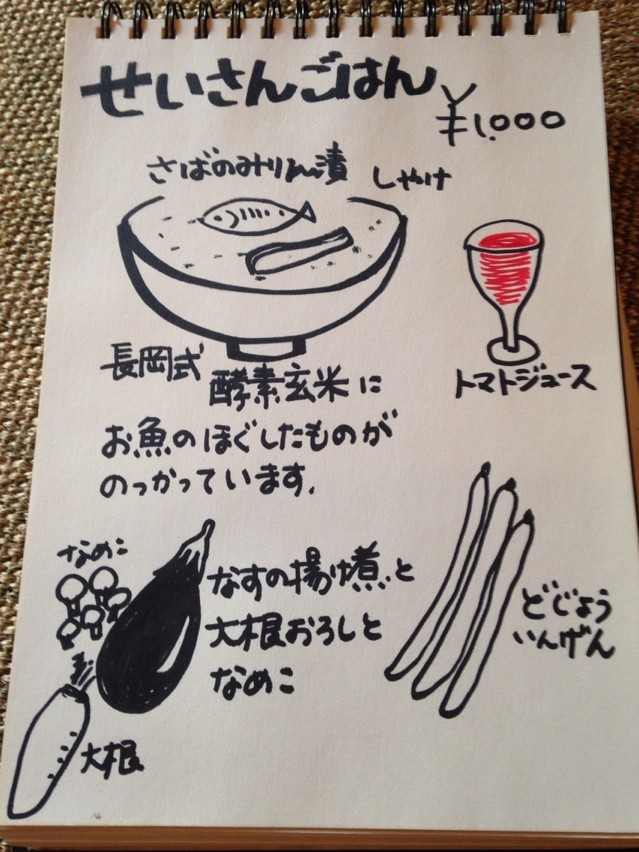 せいさんごはん
¥1,000
さばのみりん漬
しゃけ
トマトジュース
長岡式
酵素玄米に
お魚のほぐしたものが
のっかっています.
なめこ
なすの揚げ煮と
大根おろしと
なめこ
どじょう
いんげん
大根